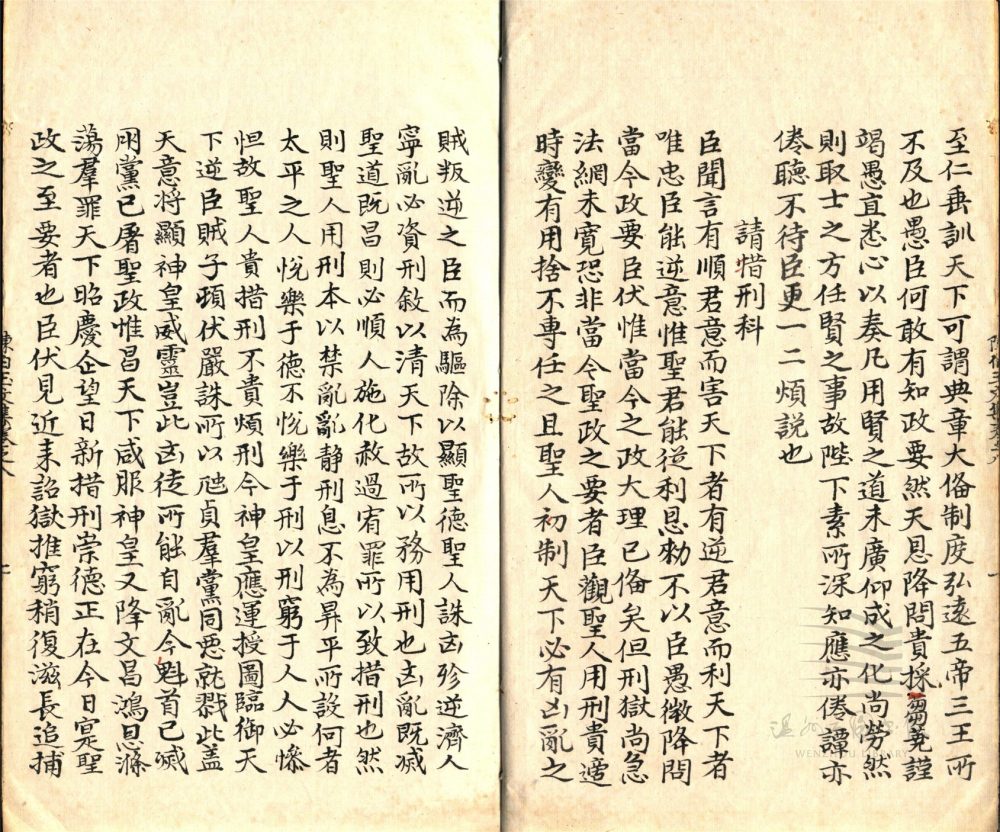 至仁垂訓天下可謂典章大偹制度弘遠五帝三王所
不及也愚臣何敢有知政要然天恩降問貴採芻蕘謹
竭愚直悉心以奏凡用賢之道未廣仰成之化尚勞然
則取士之方任賢之事故陛下素所深知應亦倦譚亦
倦聽不待臣更一二煩説也
請措刑科
臣聞言有順君意而害天下者有逆君意而利天下者
唯忠臣能逆意惟聖君能従利恩勑不以臣愚微降問
當今政要臣伏惟當今之政大理已偹矣但刑獄尚急
法網未寛恐非當今聖政之要者臣觀聖人用刑貴適
時變有用捨不專任之且聖人初制天下必有凶亂之
賊叛逆之臣而為驅除以顯聖德聖人誅凶殄逆濟人
寧亂必資刑敘以清天下故所以務用刑也凶亂既滅
聖道既昌則必順人施化赦過宥罪所以致措刑也然
則聖人用刑本以禁亂亂静刑息不為昇平所設何者
太平之人悅樂于德不悅樂于刑以刑窮于人人必慘
怛故聖人貴措刑不貴煩刑今神皇應運授圖臨御天
下逆臣賊子頓伏嚴誅所以虺貞羣黨同惡就戮此蓋
天意將顯神皇威靈豈此凶徒所能自亂今魁首已滅
朋黨已屠聖政惟昌天下咸服神皇又降文昌鴻恩滌
蕩羣罪天下昭慶企望日新措刑崇德正在今日寔聖
政之至要者也臣伏見近来詔獄推窮稍復滋長追捕
WENZHOU LIBRARY